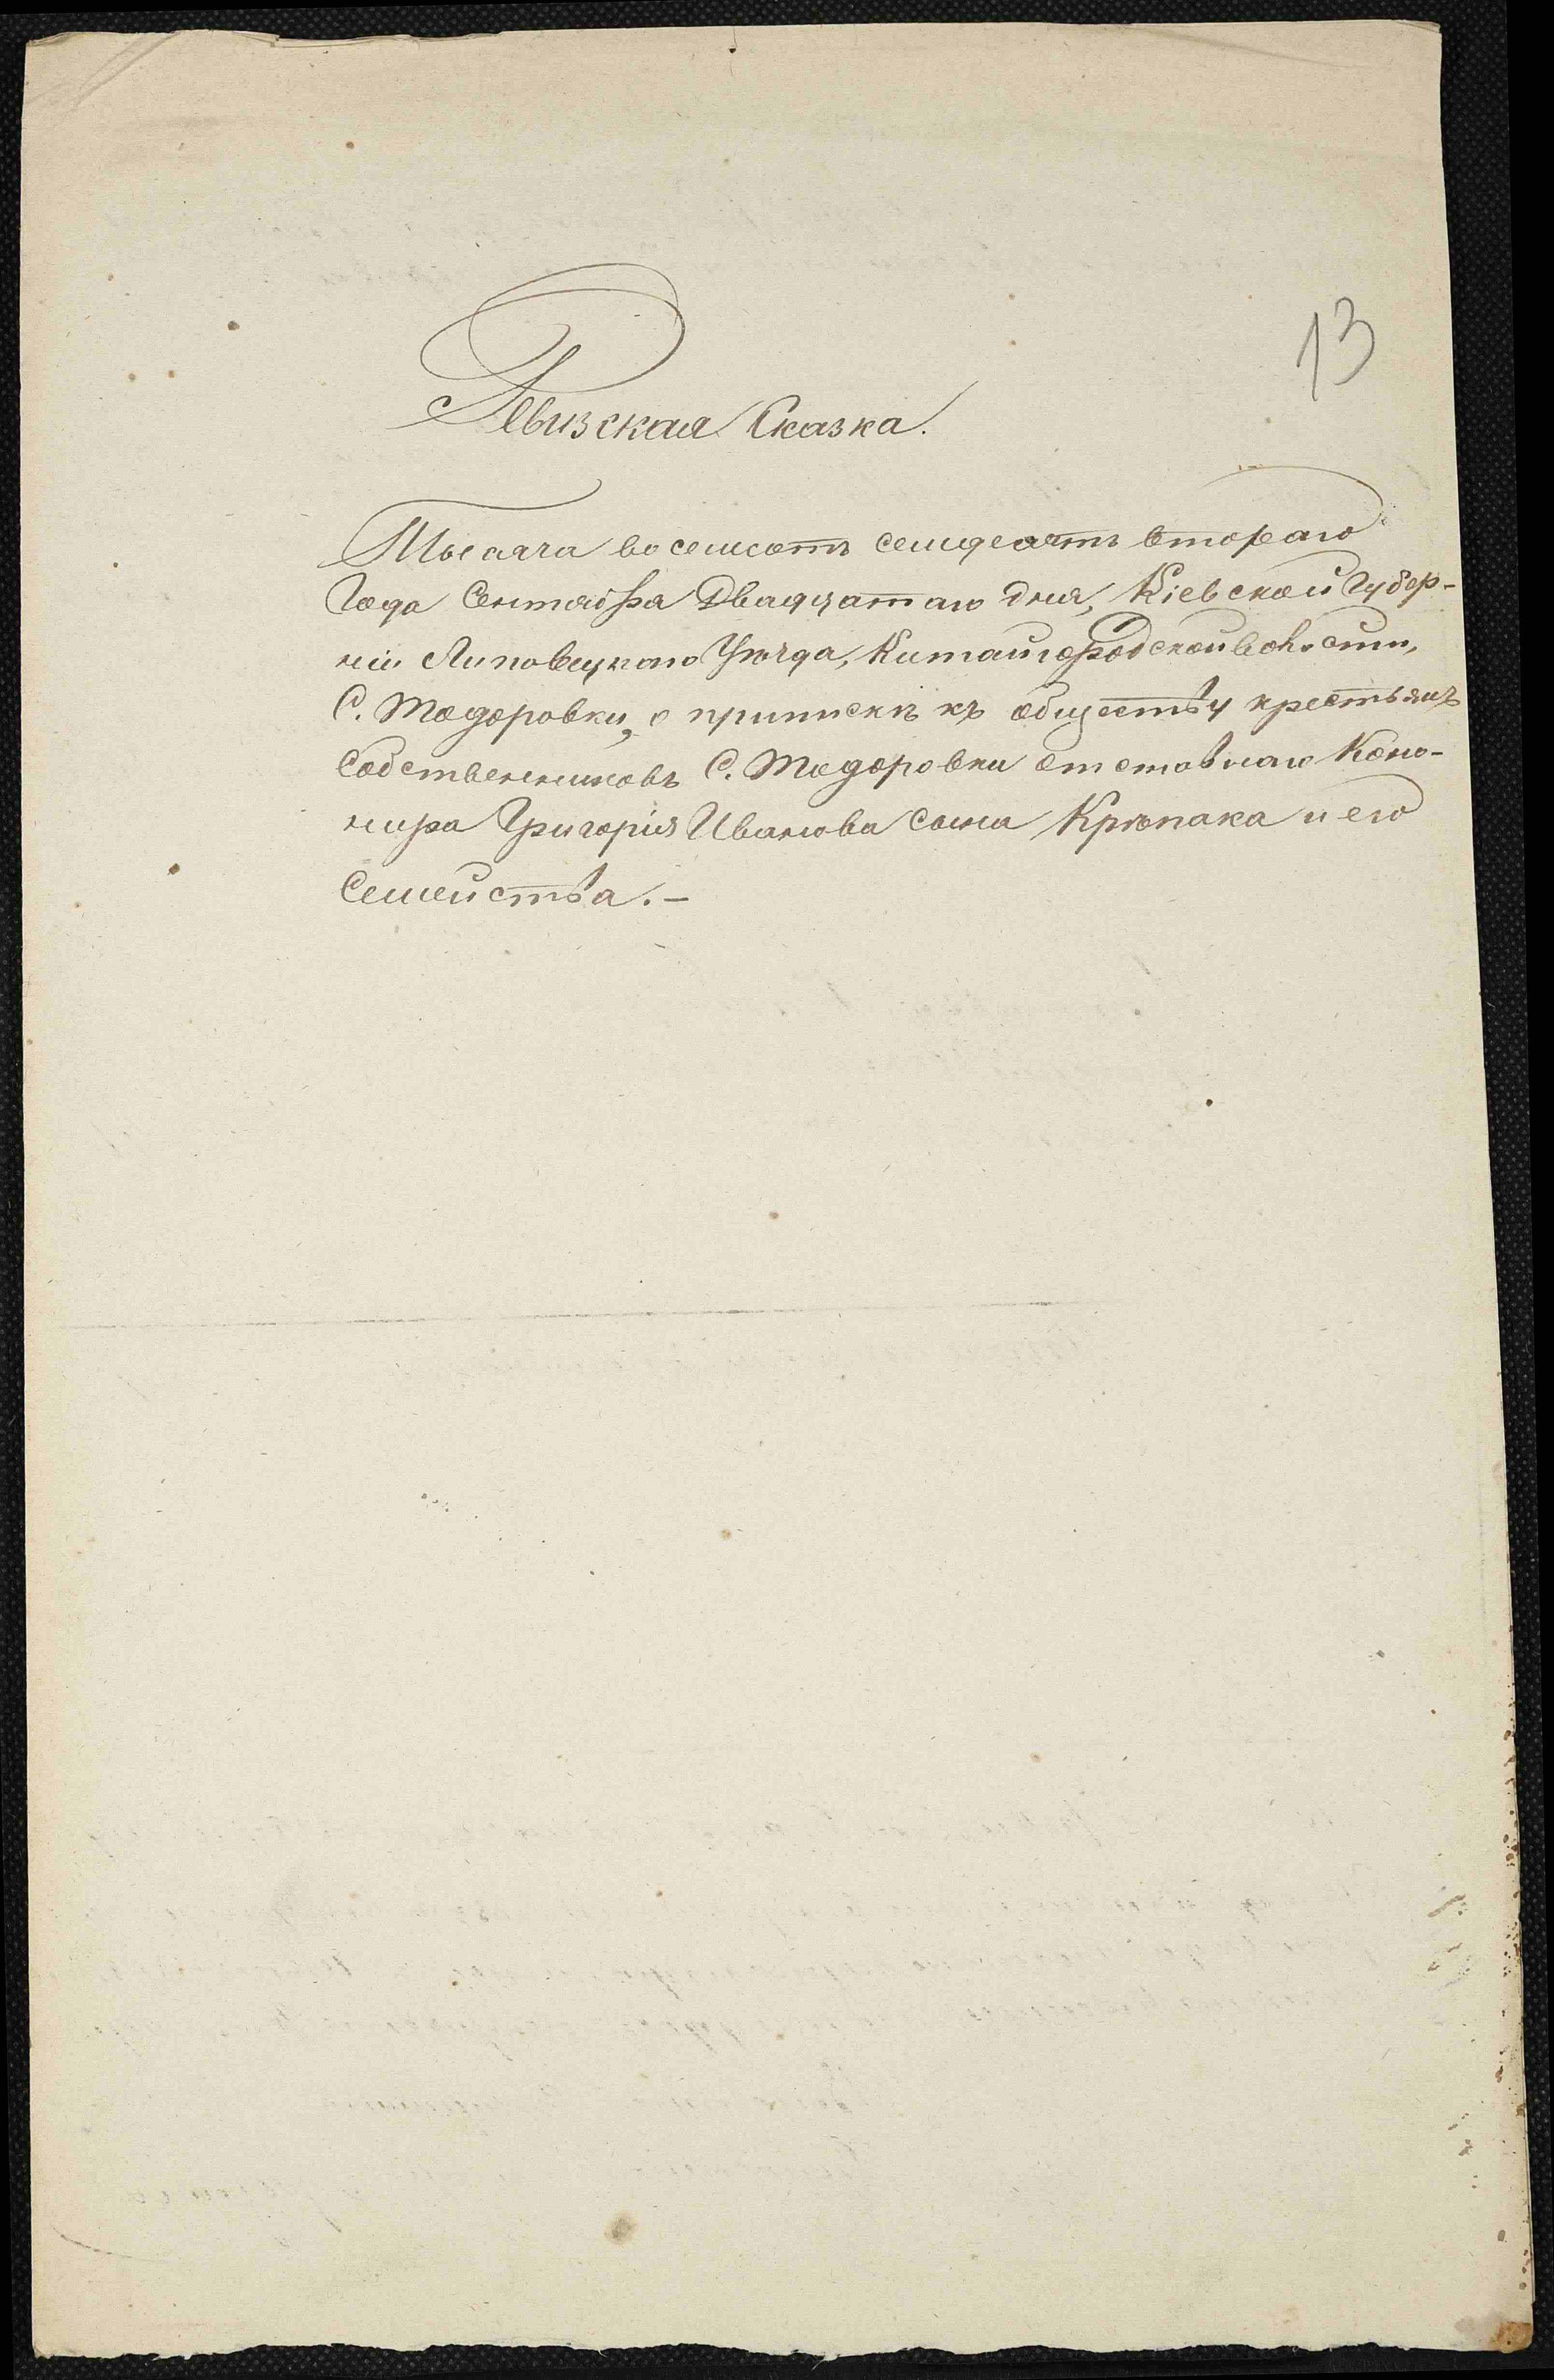 13
Ревизская Сказка.
Тысяча восемсотъ семдесятъ втораго
Года Сентября Двадцатаго дня, Кіевской Губер-
ніи Липовецкаго Уѣзда, Китайгородской волости,
С. Тодоровки, о припискѣ къ обществу крестьянъ
Собственниковъ С. Тодоровки отставнаго Коно-
нира Григорія Иванова сына Крюпака и его
Семейства.-